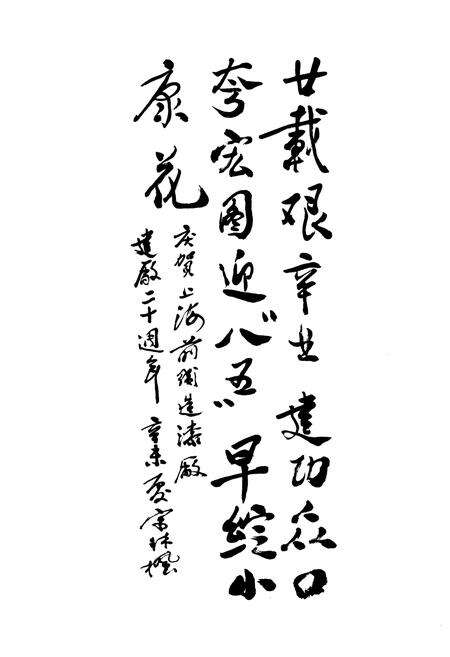 廿載艰辛 建功众口
夸宏图迎“八五”早绽小
康花
庆贺上海前 造漆厰
建厰二十週年 辛未夏 林楓